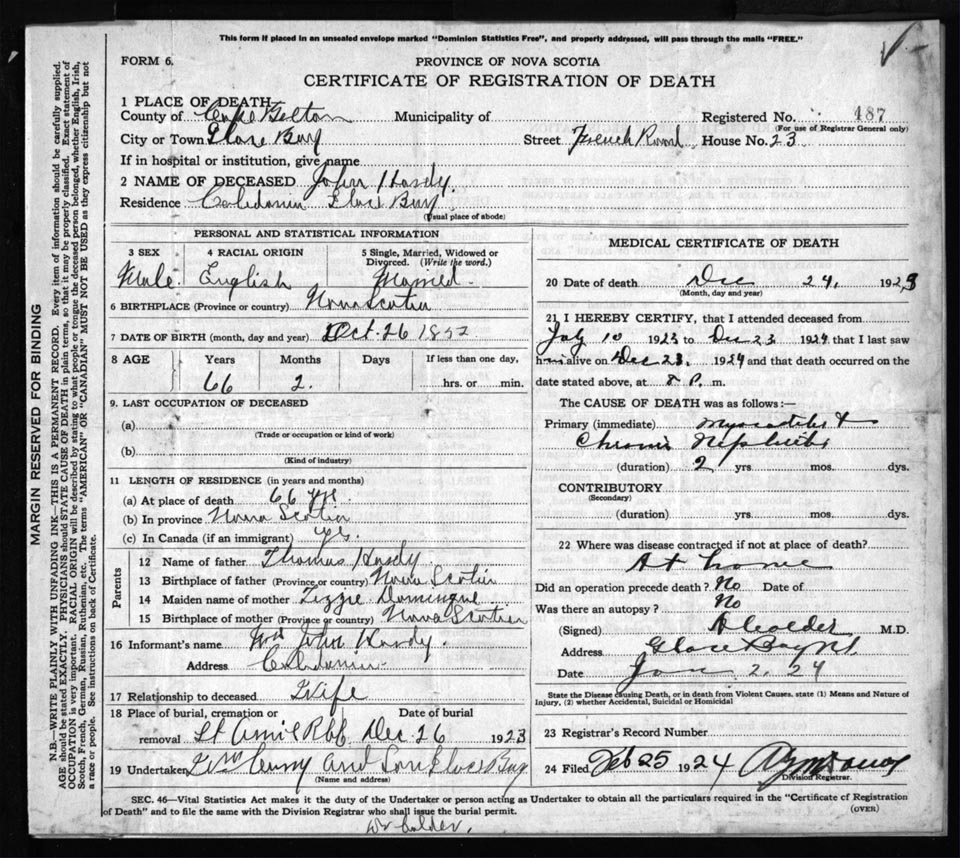 This form if placed in an unsealed envelope marked "Dominion Statistics Free", and properly addressed, will pass through the mails "FREE."
FORM 6.
PROVINCE OF NOVA SCOTIA
CERTIFICATE OF REGISTRATION OF DEATH
1 PLACE OF DEATH
County of Cape Breton Municipality of Registered No. 487
(For use of Registrar General only)
City or Town Glace Bay Street French Road House No. 23
If in hospital or institution, give name
2 NAME OF DECEASED John Hardy.
Residence Caledonia Glace Bay
(Usual place of abode)
MARGIN RESERVED FOR BINDING
N.B.—WRITE PLAINLY WITH UNFADING INK—THIS IS A PERMANENT RECORD. Every item of information should be carefully supplied.
AGE should be stated EXACTLY. PHYSICIANS should STATE CAUSE OF DEATH in plain terms, so that it may be properly classified. Exact statement of
OCCUPATION is very important. RACIAL ORIGIN will be described by stating to what people or tongue the deceased person belonged, whether English, Irish,
Scotch, French, German, Russian, Ruthenian, etc. The terms "AMERICAN" OR "CANADIAN" MUST NOT BE USED as they express citizenship but not
a race or people. See instructions on back of Certificate.
PERSONAL AND STATISTICAL INFORMATION
3 SEX 4 RACIAL ORIGIN 5 Single, Married, Widowed or
Divorced. (Write the word.)
Male English Married.
6 BIRTHPLACE (Province or country) Nova Scotia
7 DATE OF BIRTH (month, day and year) Oct. 26 1857
8 AGE Years Months Days If less than one day,
66 2. hrs. or min.
9. LAST OCCUPATION OF DECEASED
(a)
(Trade or occupation or kind of work)
(b)
(Kind of industry)
11 LENGTH OF RESIDENCE (in years and months)
(a) At place of death 66 yrs.
(b) In province Nova Scotia
(c) In Canada (if an immigrant) yes.
Parents
12 Name of father Thomas Hardy
13 Birthplace of father (Province or country) Nova Scotia
14 Maiden name of mother Lizzie Domingue
15 Birthplace of mother (Province or country) Nova Scotia
16 Informant's name Mrs John Hardy.
Address Caledonia.
17 Relationship to deceased Wife
18 Place of burial, cremation or Date of burial
removal St Dec 26 1923
19 Undertaker and Son Glace Bay
(Name and address)
MEDICAL CERTIFICATE OF DEATH
20 Date of death Dec 24. 1923
(Month, day and year)
21 I HEREBY CERTIFY, that I attended deceased from
July 10 1923 to Dec 23 1924 that I last saw
him alive on Dec 23. 1924 and that death occurred on the
date stated above, at 8 P. m.
The CAUSE OF DEATH was as follows:—
Primary (immediate) Myocarditis &
Chronic Nephritis
(duration) 2 yrs. mos. dys.
CONTRIBUTORY
(Secondary)
(duration) yrs. mos. dys.
22 Where was disease contracted if not at place of death?
At home
Did an operation precede death? No Date of
Was there an autopsy? No
(Signed) A Calder M.D.
Address Glace Bay N.S.
Date Jan 2. 24
State the Disease causing Death, or in death from Violent Causes, state (1) Means and Nature of
Injury, (2) whether Accidental, Suicidal or Homicidal
23 Registrar's Record Number
24 Filed Feb 25 1924
Division Registrar.
SEC. 46—Vital Statistics Act makes it the duty of the Undertaker or person acting as Undertaker to obtain all the particulars required in the "Certificate of Registration
of Death" and to file the same with the Division Registrar who shall issue the burial permit. (OVER)
Dr Calder.